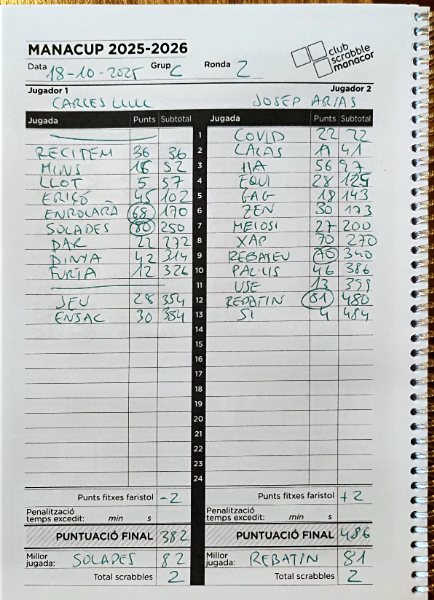 MANACUP 2025-2026
club scrabble manacor
Data 18-10-2025 Grup C Ronda 2
Jugador 1 Jugador 2
CARLES LLULL JOSEP ARIAS
Jugada Punts Subtotal Jugada Punts Subtotal
1 COVID 22 22
RECITEM 36 36 2 41
MINS 16 52 3 56 97
LLOT 5 57 4 EQUI 28 125
ERIÇÓ 45 102 5 GAG 18 143
ENROLARÀ 68 170 6 ZEN 30 173
SOLADES 80 250 7 MEIOSI 27 200
DAR 22 272 8 XAP 70 270
42 314 9 REBATEU 70 340
FURIA 12 326 10 46 386
11 USE 13 399
JEU 28 354 12 REBATIN 81 480
ENSAC 30 384 13 SI 4 484
14
15
16
17
18
19
20
21
22
23
24
Punts fitxes faristol -2 Punts fitxes faristol +2
Penalització temps excedit: min s Penalització temps excedit: min s
PUNTUACIÓ FINAL 382 PUNTUACIÓ FINAL 486
Millor jugada: SOLADES 82 Millor jugada: REBATIN 81
Total scrabbles 2 Total scrabbles 2